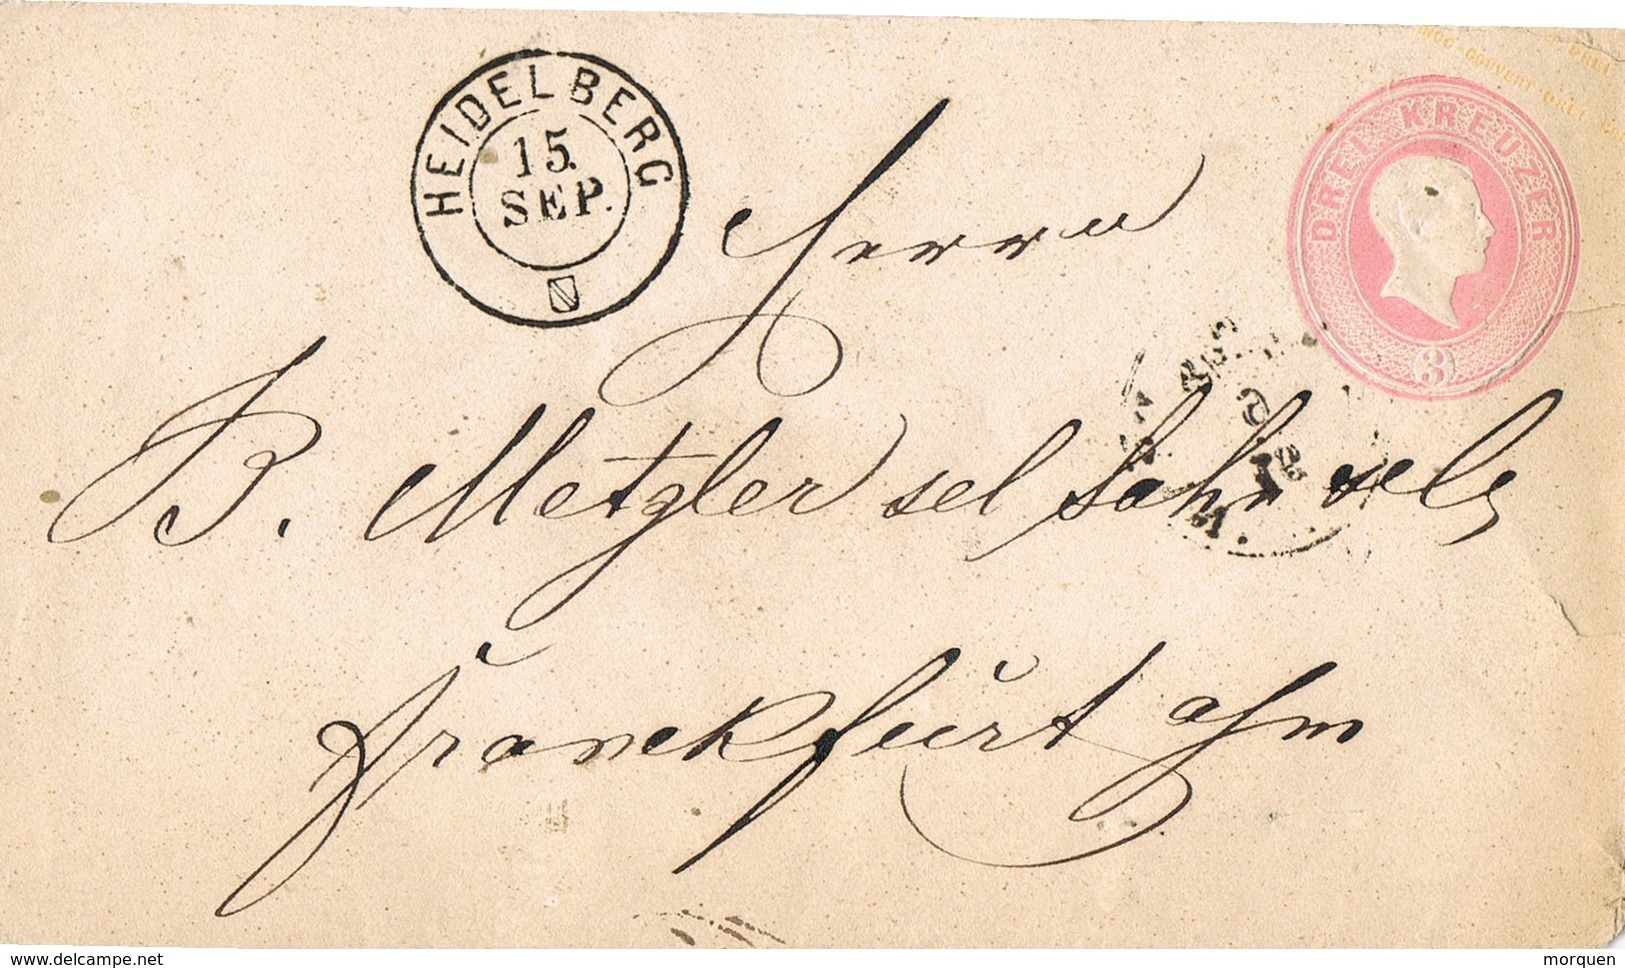 COUVERT DREI
DREI KREUZER
3
HEIDELBERG
15.
SEP.
Herrn
B. Metzler sel Sohn
Frankfurt a/m
www.delcampe.net
morquen